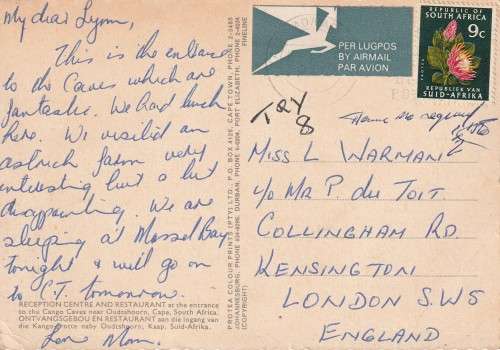 My dear Lynn,
This is the entrance
to the Caves which are
fantastic. We had lunch
here. We visited an
ostrich farm very
interesting but a bit
disappointing. We are
sleeping at Mossel Bay
tonight & will go on
to C.T. tomorrow.
Love Mom.
RECEPTION CENTRE AND RESTAURANT at the entrance
to the Cango Caves near Oudtshoorn, Cape, South Africa.
ONTVANGSGEBOU EN RESTAURANT aan die ingang van
die Kango-Grotte naby Oudtshoorn, Kaap, Suid-Afrika.
PROTEA COLOUR PRINTS (PTY) LTD. P.O. BOX 4106, CAPE TOWN, PHONE 2-0485
JOHANNESBURG, PHONE DURBAN, PHONE PORT ELIZABETH, PHONE
(COPYRIGHT)
FINELINE
PER LUGPOS
BY AIRMAIL
PAR AVION
REPUBLIC OF
SOUTH AFRICA
9c
PROTEA
REPUBLIEK VAN
SUID-AFRIKA
TRY
8
MISS L WARMAN
c/o MR P. du TOIT
COLLINGHAM RD
KENSINGTON
LONDON S.W5
ENGLAND